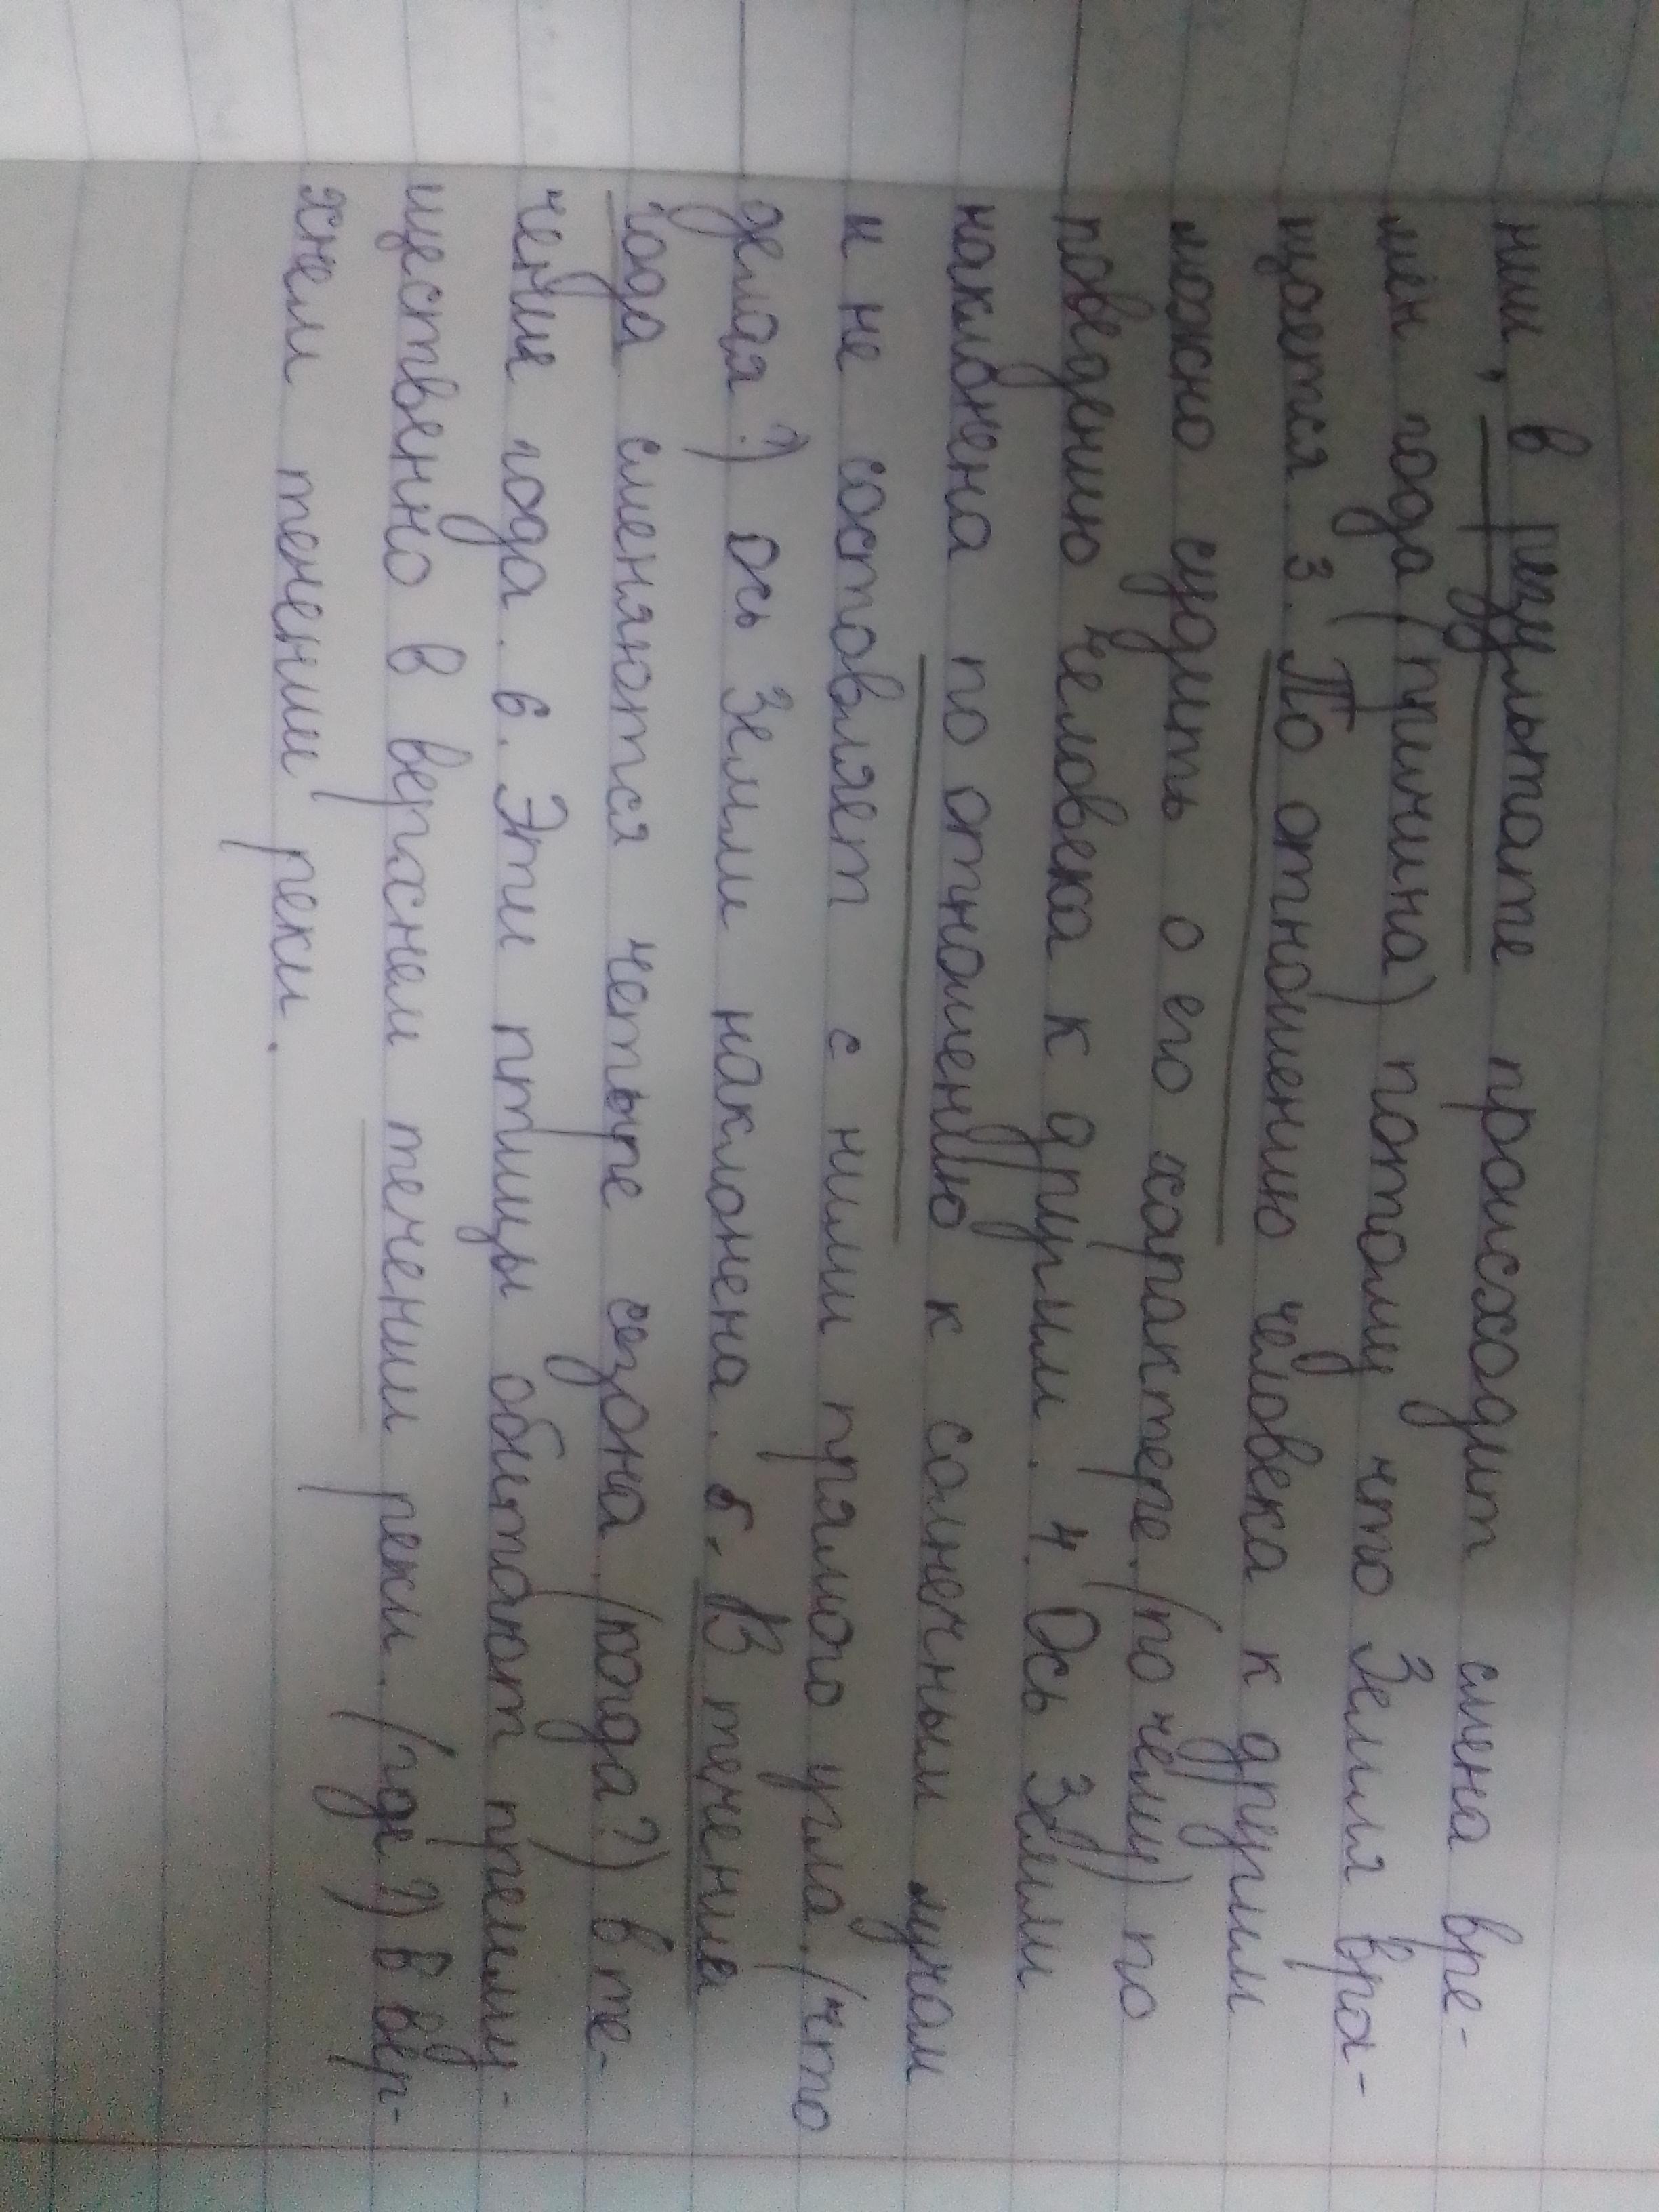 нии, в результате происходит смена вре-
мён года (причина) потому что Земля вра-
щается 3. По отношению человека к другим
можно судить о его характере. (по чему) по
поведению человека к другим. 4. Ось Земли
наклонена по отношению к солнечным лучам
и не составляет с ними прямого угла. (что
делая?) Ось Земли наклонена. 5. В течении
года сменяются четыре сезона. (когда?) в те-
чении года. 6. Эти птицы обитают преиму-
щественно в верхнем течении реки. (где?) В вер-
хнем течении реки.